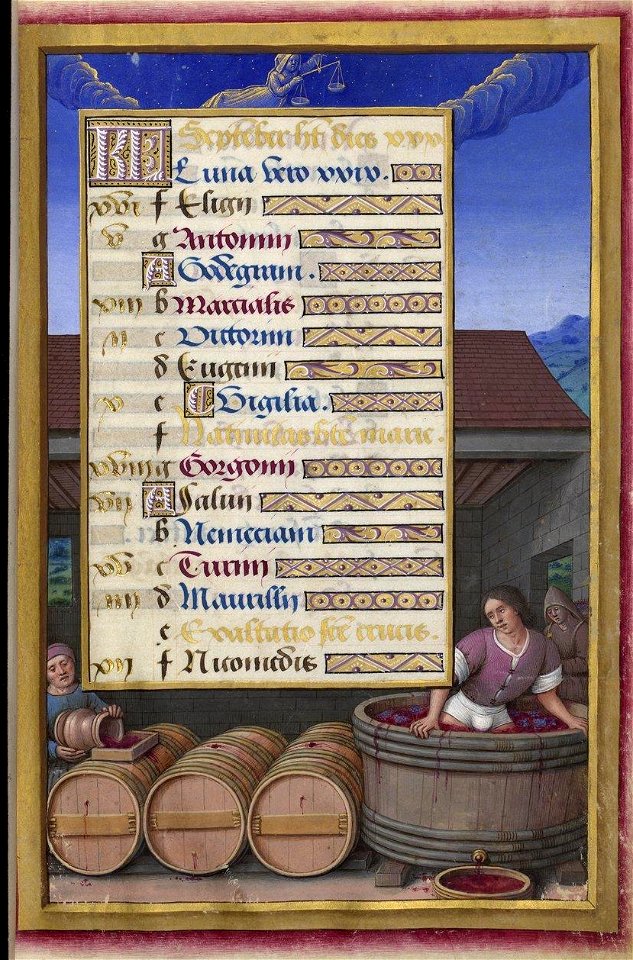 KL September hȝ dies xxx
Luna vero xxix.
xvi f Eligii
v g Antonini
A Godegrani.
xiii b Marcialis
ii c Victorini
d Eugenii
x e Vigilia.
f Nativitas bte marie.
xviii g Gorgonii
vii A Salvii
b Nemeciani
xv c Turini
iiii d Maurilii
e Exaltatio scte crucis.
xii f Nicomedis